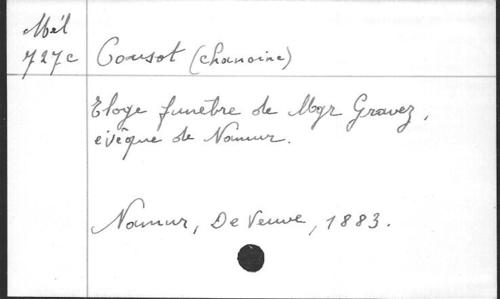 Mél
727c Cousot (chanoine)
Eloge funèbre de Mgr Gravez,
evêque de Namur.
Namur, De Veuve, 1883.